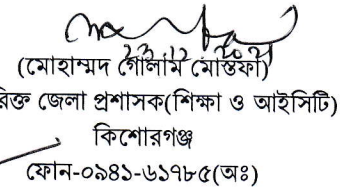 23.12.2021
(মোহাম্মদ গোলাম মোস্তফা)
রিক্ত জেলা প্রশাসক(শিক্ষা ও আইসিটি)
কিশোরগঞ্জ
ফোন-০৯৪১-৬১৭৮৫(অঃ)